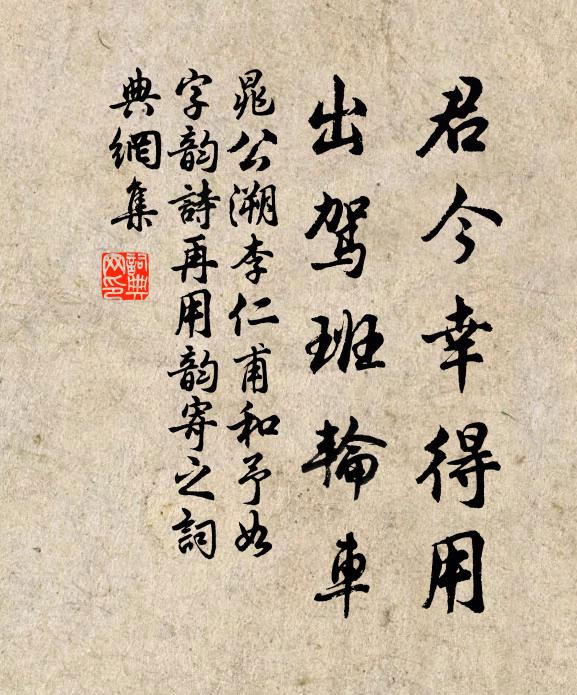 君今幸得用
出駕班輪車
晁公溯李仁甫和予如
字韵詩再用韵寄之詞
典網集
詞典網印